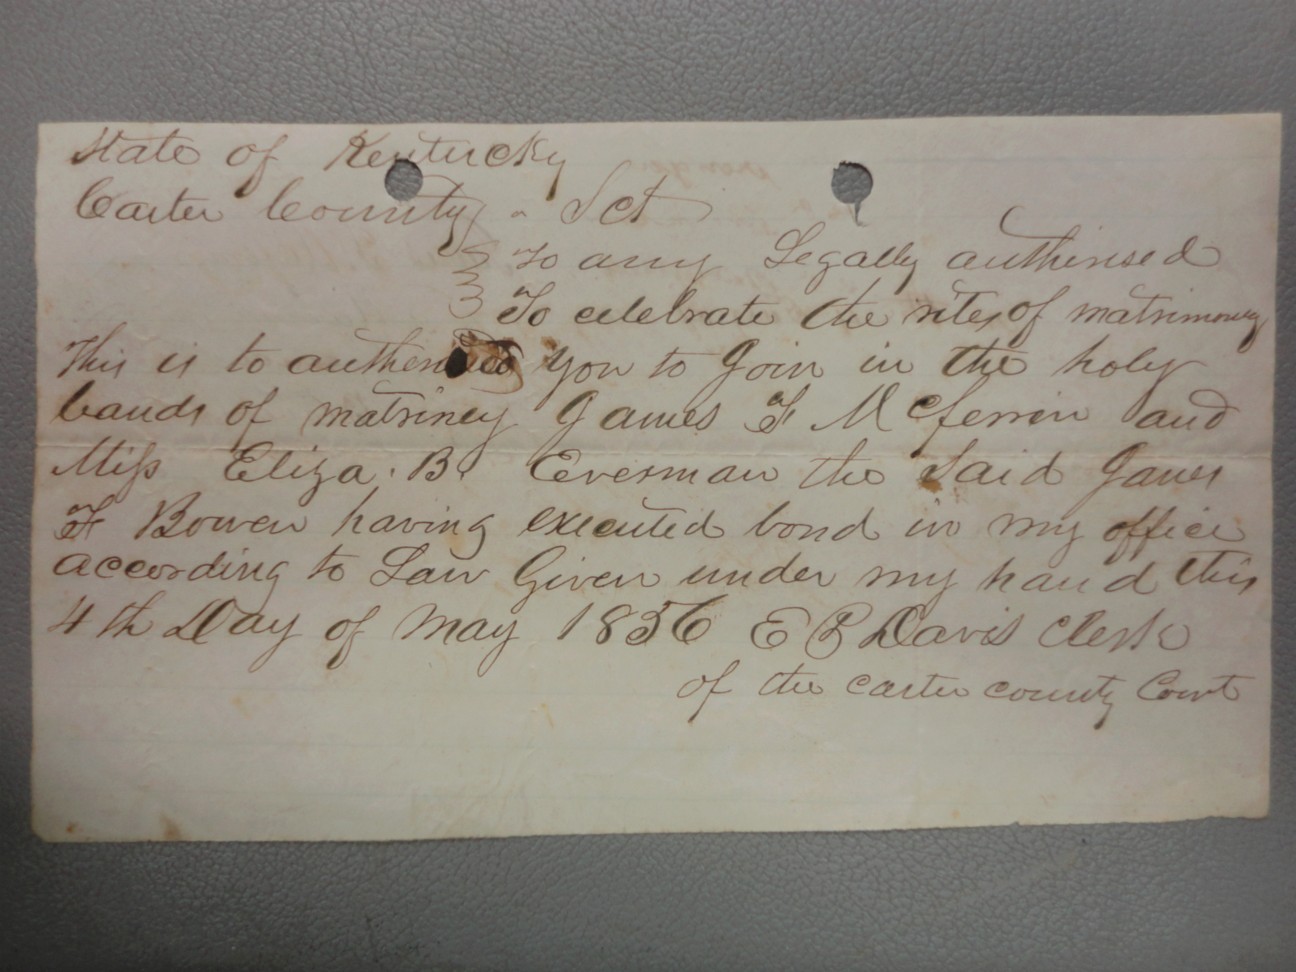 State of Kentucky
Carter County } Sct
To any Legally autherised
To celebrate the rites of matrimoney
This is to autherised you to Join in the holy
bands of matriney James F McFerrin and
Miss Eliza. B. Everman the Said James
F Bowen having executed bond in my office
according to Law Given under my hand this
4th Day of May 1856 E Davis Clerk
of the carter county Court